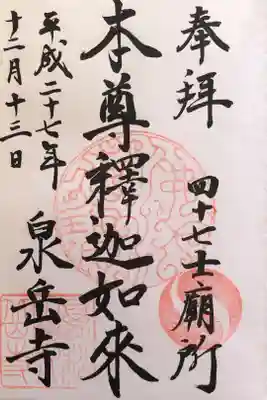 奉拝
四十七士廟所
本尊釋迦如來
平成二十七年
十二月十三日
泉岳寺